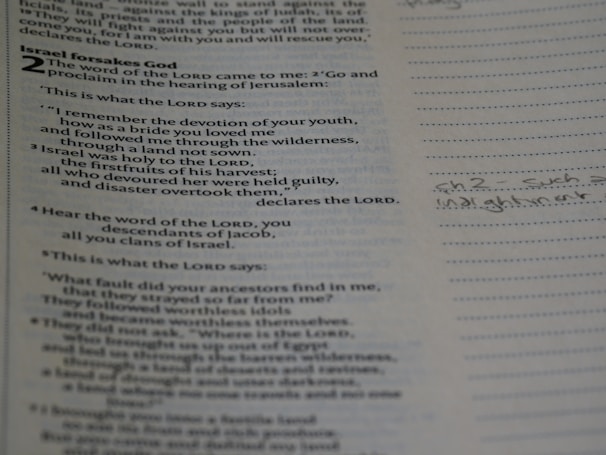 the land — against the kings of Judah, its of-
ficials, its priests and the people of the land.
19 They will fight against you but will not over-
come you, for I am with you and will rescue you,'
declares the LORD.
Israel forsakes God
2 The word of the LORD came to me: 2 'Go and
proclaim in the hearing of Jerusalem:
'This is what the LORD says:
' "I remember the devotion of your youth,
how as a bride you loved me
and followed me through the wilderness,
through a land not sown.
3 Israel was holy to the LORD,
the firstfruits of his harvest;
all who devoured her were held guilty,
and disaster overtook them," '
declares the LORD.
4 Hear the word of the LORD, you
descendants of Jacob,
all you clans of Israel.
5 This is what the LORD says:
'What fault did your ancestors find in me,
that they strayed so far from me?
They followed worthless idols
and became worthless themselves.
6 They did not ask, "Where is the LORD,
who brought us up out of Egypt
and led us through the barren wilderness,
through a land of deserts and ravines,
a land of drought and utter darkness,
a land where no one travels and no one
lives?"
7 I brought you into a fertile land
to eat its fruit and rich produce.
But you came and defiled my land
ch 2 - such a